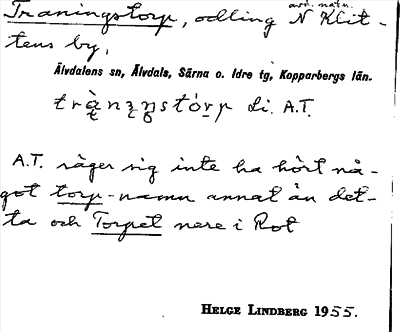 Traningstorp, odling N Klit-
tens by,
Älvdalens sn, Älvdals, Särna o. Idre tg, Kopparbergs län.
Li. A.T.
A.T. säger sig inte ha hört nå-
got torp-namn annat än det-
ta och Torpet nere i Rot
HELGE LINDBERG 1955.